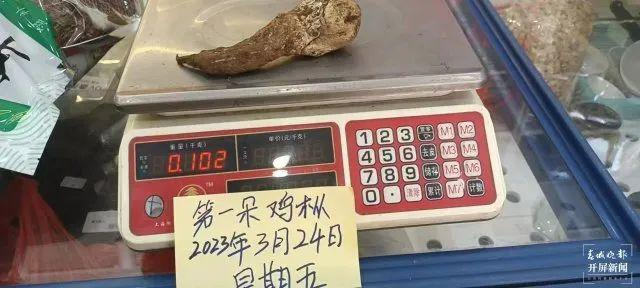 重量(千克)
单价(元/千克)
0.102
1 2 3 M1 M2
4 5 6 去皮 M3 M4
7 8 9 储存 M5 M6
0 · 清除 累计 M7 计数
TM
第一朵鸡枞
2023年3月24日
星期五
春城晚报
开屏新闻